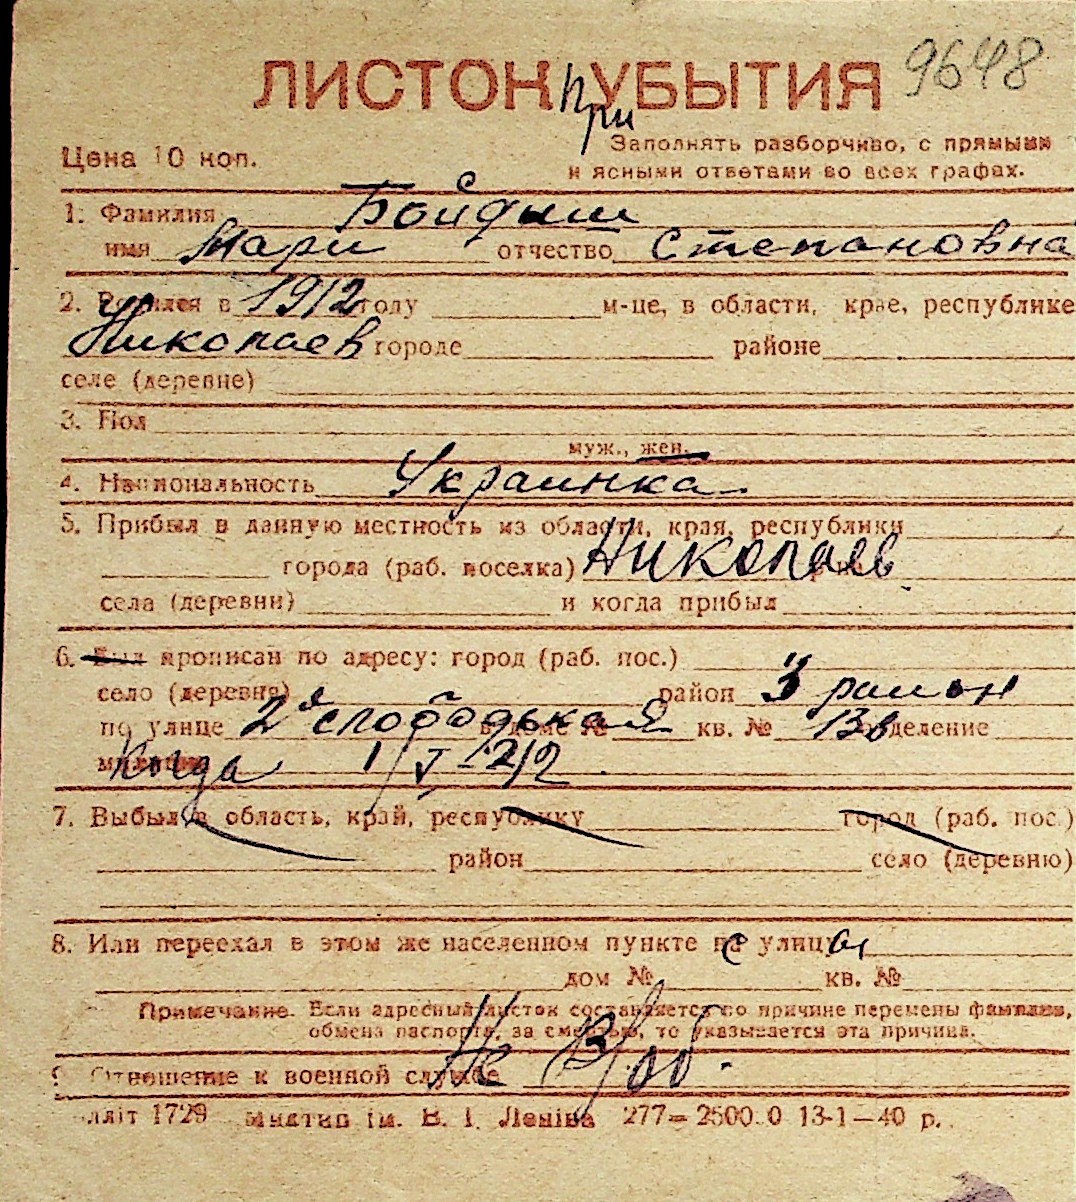 9648
ЛИСТОК УБЫТИЯ
При
Цена 10 коп.
Заполнять разборчиво, с прямыми
и ясными ответами во всех графах.
1. Фамилия Бойдыш
имя Мари отчество Степановна
2. Родился в 1912 году м-це, в области, крае, республике
Николаев городе районе
селе (деревне)
3. Пол
муж., жен.
4. Национальность Украинка
5. Прибыл в данную местность из области, края, республики
города (раб. поселка) Николаев
села (деревни) и когда прибыл
6. Был прописан по адресу: город (раб. пос.)
село (деревня) район 3 район
по улице 2я слободькая в доме № кв. № 13в отделение
Когда 1/V-212
7. Выбыл в область, край, республику город (раб. пос.)
район село (деревню)
8. Или переехал в этом же населенном пункте с улицы
дом № кв. №
Примечание. Если адресный листок составляется по причине перемены фамилии,
обмена паспорта, за смертью, то указывается эта причина.
9. Отношение к военной службе Не в/об.
лліт 1729 Миктип ім. В. І. Леніна 277—2500.0 13-1—40 р.